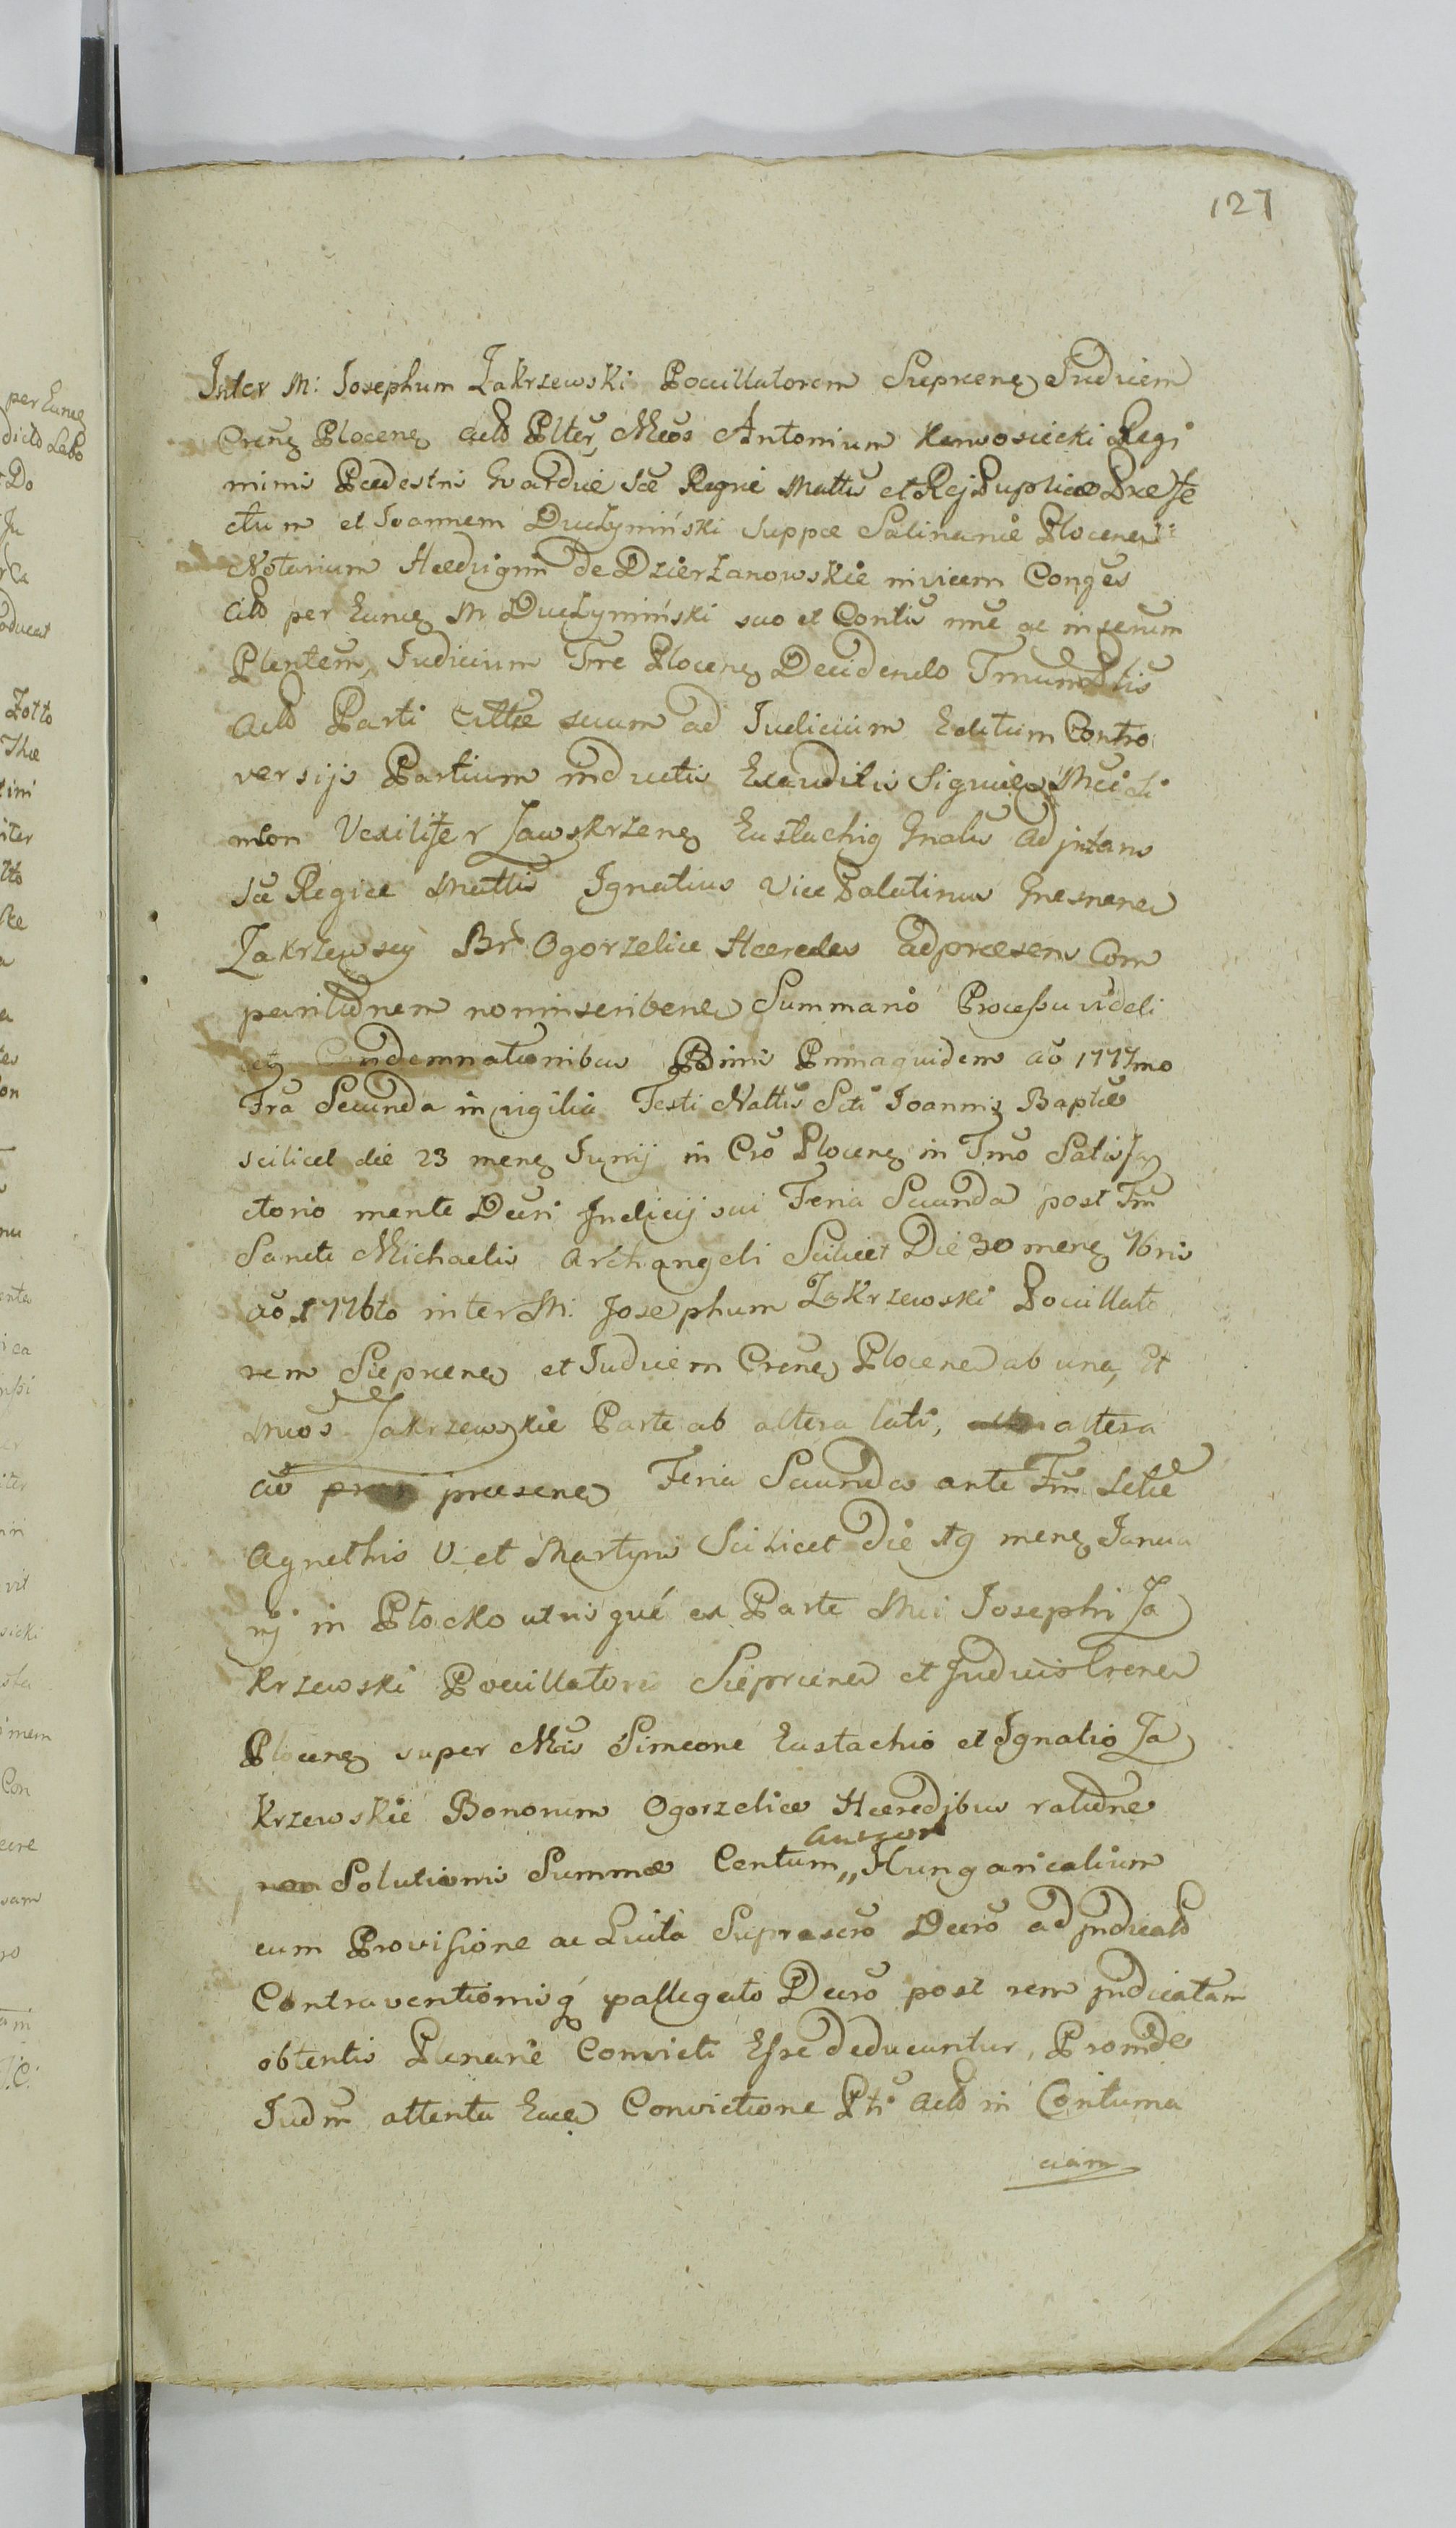 127
Inter M: Josephum Zakrzewski Pocillatorem Sieprcen Judicem
Crens Plocens Actb Plter Mcos Antonium Karwosiecki Regi
minis Pedestris Gvardiæ Sæ Regiæ Mattis et Rej Puplicæ Præfe
ctum et Joannem Duczymiński Suppæ Salinariæ Plocens
Notarium Hædvigim de Dzierzanowskie invicem Conges
Citb per Eunc M Duczymiński suo et Contis nne ac inserum
Plentem, Judicium Tre Plocens Decidendo Tmum
Actb Parti Cittæ suum ad Judicium Editum Contro
versijs Partium inductis Exauditis Siquidem Mci Si
meon Vexilifer Zawskrzens Eustachig Gnalis Adjutans
Sæ Regiæ Mattis Ignatius Vice Palatinus Gnesnens
Zakrzewscy Br Ogorzelice Hæredes ad præsens Com
paritionem non inscribens Summario Processu videli
ct Condemnationibus Binis Prima quidem ao 1777mo
Fra Secunda in vigilia Festi Nattis Scti Joannis Baptæ
scilicet die 23 mens Junij in Cro Plocens in Tmo Satisfa
ctorio mente Decri Judicij sui Feria Secunda post Fm
Sancti Michaelis Archangeli Scilicet Die 30 mens 7bris
ao 1776to inter M: Josephum Zakrzewski Pocillato
rem Sieprcens et Judicem Crens Plocens ab una, Et
Mcos Zakrzewskie Parte ab altera lati, altera
ao præsens Feria Secunda ante Fm Sctæ
Agnethis V: et Martyris Scilicet Die 19 mens Janua
rij in Płocko utrisqué ex Parte Mci Josephi Za
krzewski Pocillatoris Sieprcens et Judicis Crens
Plocens super Mcis Simeone Eustachio et Ignatio Za
krzewskie Bonorum Ogorzelice Hæredibus ratione
non Solutionis Summæ Centum „ Aureor Hungaricalium
cum Provisione ac Luita Suprascro Decro adjudicatb
Contraventionisq́ pallegato Decro post rem judicatam
obtentis Plenarie Convicti Esse deducuntur, Proinde
Judm attenta Eace Convictione Pti Actb in Contuma
ciam